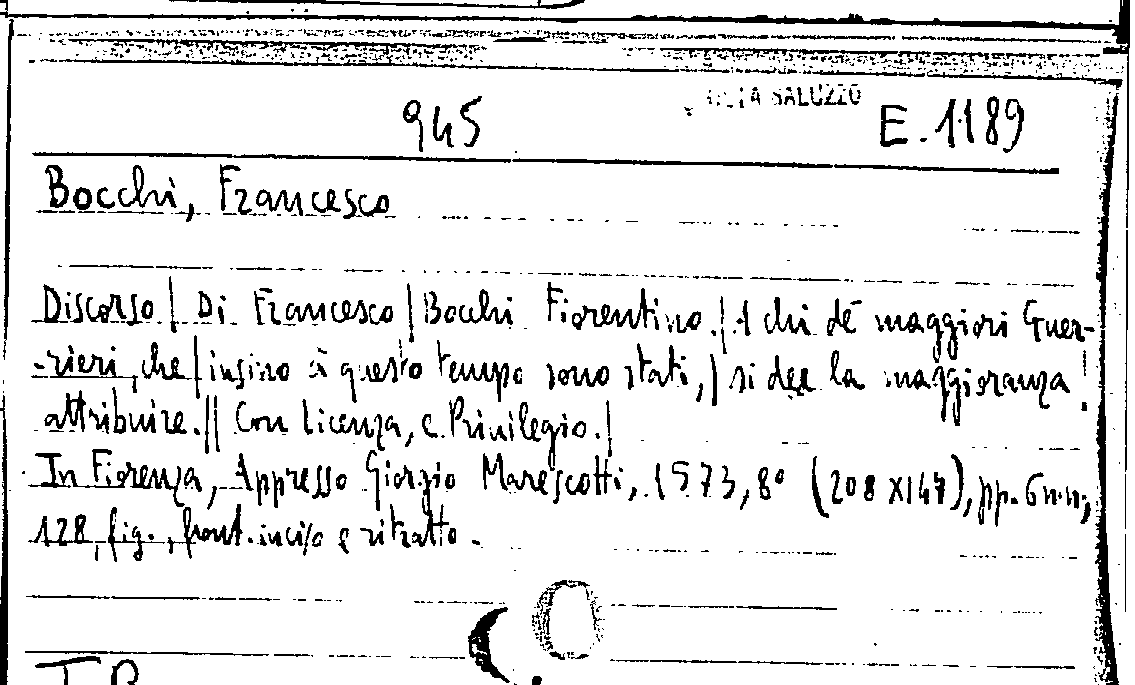 945 SALUZZO E.1189
Bocchi, Francesco
Discorso | Di Francesco | Bocchi Fiorentino. | A chi de maggiori Guer-
-rieri, che | insino à questo tempo sono stati, | si dee la maggioranza |
attribuire. || Con licenza, e Privilegio. |
In Fiorenza, Appresso Giorgio Marescotti, 1573, 8° (208 x 147), pp. 6 n.n.,
128, fig., front. inciso e ritratto.